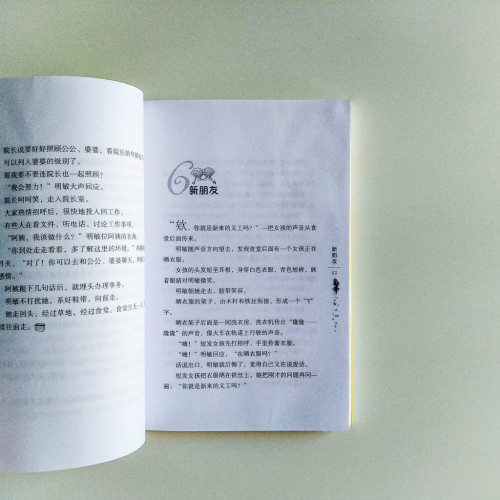 院长说要好好照顾公公、婆婆,看院长的年龄也
可以列入婆婆的级别了。
那我要不要连院长也一起照顾?
“我会努力!”明敏大声回应。
院长呵呵笑,走入院长室。
大家热情招呼后,很快地投入回工作。
有些人在看文件,听电话、讨论工作事项。
“阿姨,我该做什么?”明敏拉阿姨的衣角。
“你到处走走看看,多了解这里的环境。”
夹,“对了!你可以去和公公、婆婆聊天,
感情。”
阿姨抛下几句话后,就埋头办理事务。
明敏不打扰她,系好鞋带,向前走。
她走回头,经过草地,经过食堂,食堂空无一人
续往前走。
6
新朋友
“欸,你就是新来的义工吗?”一把女孩的声音从食
堂后面传来。
明敏随声音方向望去,发现食堂后面有一个女孩正在
晒衣服。
女孩的头发短至耳根,身穿白色衣服、青色短裤,眯
着眼睛对明敏微笑。
明敏朝她走去,脸带笑容。
晒衣服的架子,由木村和铁丝衔接,形成一个“T”
字。
晒衣架子后面是一间洗衣房,洗衣机传出“隆隆……
隆隆”的声音,像火车在轨道上行驶的声音。
“嗨!”短发女孩先打招呼,手里拎着衣服。
“嗨!”明敏回应,“在晒衣服吗?”
话说出口,明敏就后悔了,觉得自己又在说废话。
短发女孩把衣服晒在铁丝上,她把刚才的问题再问一
遍:“你就是新来的义工吗?”
新朋友
53